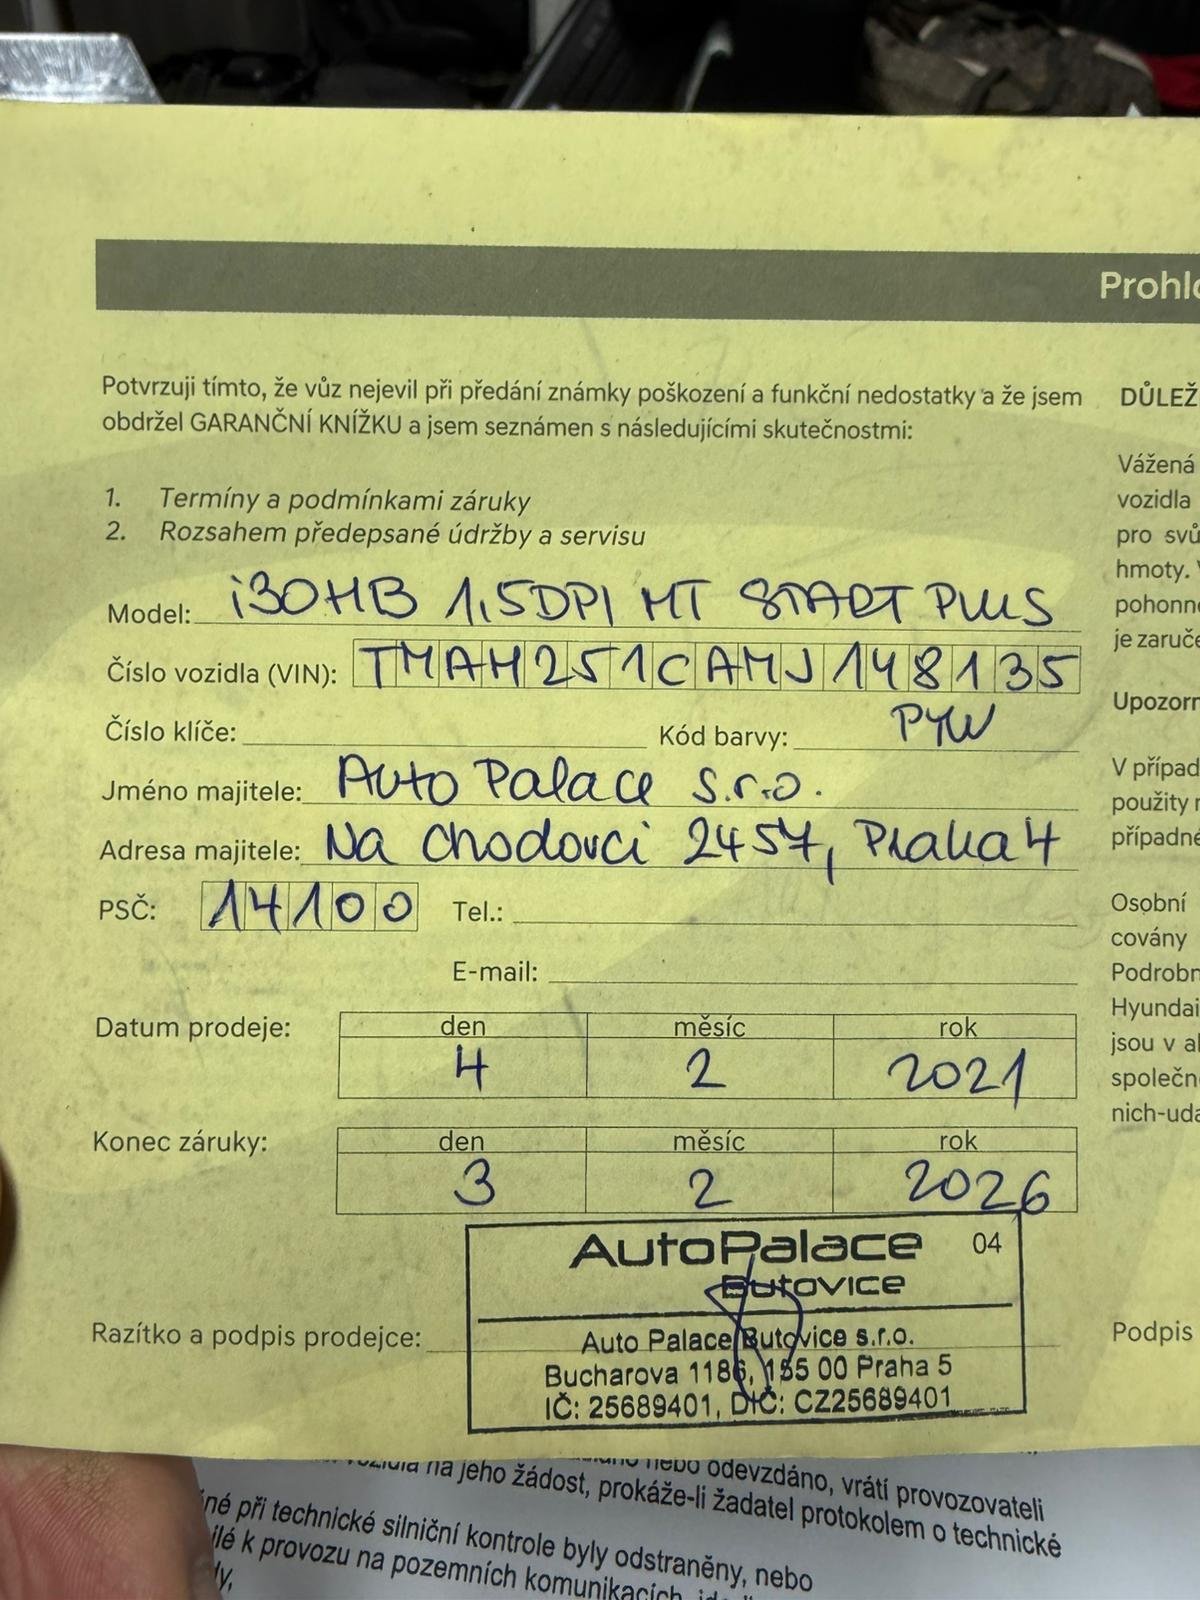 Prohl
Potvrzuji tímto, že vůz nejevil při předání známky poškození a funkční nedostatky a že jsem
obdržel GARANČNÍ KNÍŽKU a jsem seznámen s následujícími skutečnostmi:
1. Termíny a podmínkami záruky
2. Rozsahem předepsané údržby a servisu
Model: i30HB 1,5DPI MT START PLUS
Číslo vozidla (VIN): TMAH251CAMJ148135
Číslo klíče: Kód barvy: PYW
Jméno majitele: Auto Palace s.r.o.
Adresa majitele: Na Chodovci 2457, Praha 4
PSČ: 14100 Tel.:
E-mail:
Datum prodeje: den měsíc rok
4 2 2021
Konec záruky: den měsíc rok
3 2 2026
AutoPalace 04
Butovice
Razítko a podpis prodejce: Auto Palace Butovice s.r.o.
Bucharova 1186, 155 00 Praha 5
IČ: 25689401, DIČ: CZ25689401
DŮLEŽ
Vážená
vozidla
pro svů
hmoty. V
pohonné
je zaruče
Upozorn
V případ
použity n
případné
Osobní
covány
Podrobn
Hyundai
jsou v al
společn
nich-uda
Podpis
nebo odevzdáno, vrátí provozovateli
vozidla na jeho žádost, prokáže-li žadatel protokolem o technické
né při technické silniční kontrole byly odstraněny, nebo
ilé k provozu na pozemních komunikacích,